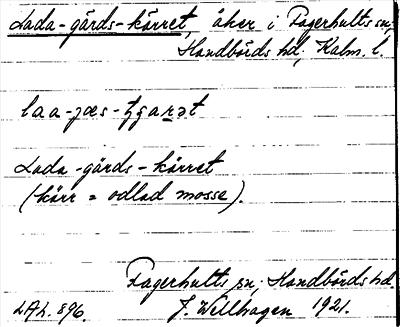 Lada-gårds-kärret, åker i Fagerhults sn,
Handbörds hd, Kalm. l.
laa-jæs-tɟɡarət
Lada-gårds-kärret
(kärr = odlad mosse).
Fagerhults sn, Handbörds hd.
LAL. 896. J. Willhagen 1921.